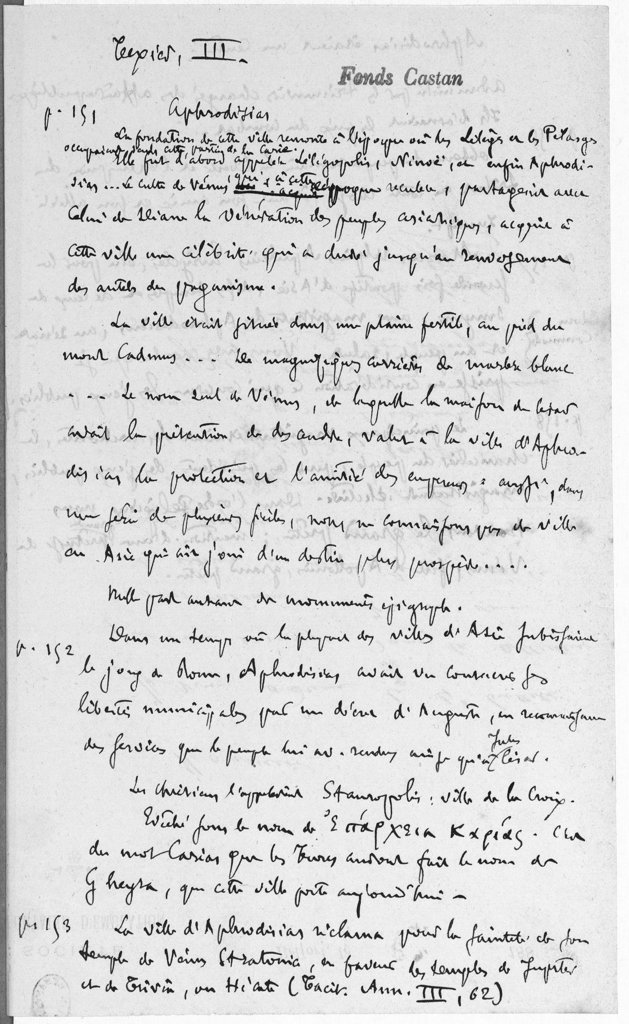 Texier, III.
Fonds Castan
p. 151 Aphrodisias
La fondation de cette ville remonte à l'époque où les Lélèges et les Pélasges
occupaient cette partie de la Carie.
Elle fut d'abord appelée Lélégopolis, Ninoë, et enfin Aphrodi-
sias... Le culte de Vénus qui, à cette époque reculée, partageait avec
celui de Diane la vénération des peuples asiatiques, acquit à
cette ville une célébrité qui a duré jusqu'au renversement
des autels du paganisme.
La ville était située dans une plaine fertile, au pied du
mont Cadmus.... De magnifiques carrières de marbre blanc
.... Le nom seul de Vénus, de laquelle la maison de César
avait la prétention de descendre, valut à la ville d'Aphro-
disias la protection et l'amitié des empereurs : aussi, dans
une série de plusieurs siècles, nous ne connaissons pas de ville
en Asie qui ait joui d'un destin plus prospère....
Nulle part autant de monuments épigraph.
p. 152 Dans un temps où la plupart des villes d'Asie subissaient
le joug de Rome, Aphrodisias avait vu consacrer ses
libertés municipales par un décret d'Auguste, en reconnaissance
des services que le peuple lui av. rendus ainsi qu'à Jules César.
Les chrétiens l'appelèrent Stauropolis : ville de la Croix.
Evêché sous le nom de Ἐπάρχεια Καρίας. C'est
du mot Carias que les Turcs auront fait le nom de
Gheyra, que cette ville porte aujourd'hui –
p. 153 La ville d'Aphrodisias réclama pour la sainteté de son
temple de Vénus Stratonice, en faveur les temples de Jupiter
et de Trivia, ou Hécate (Tacit. Ann. III, 62)